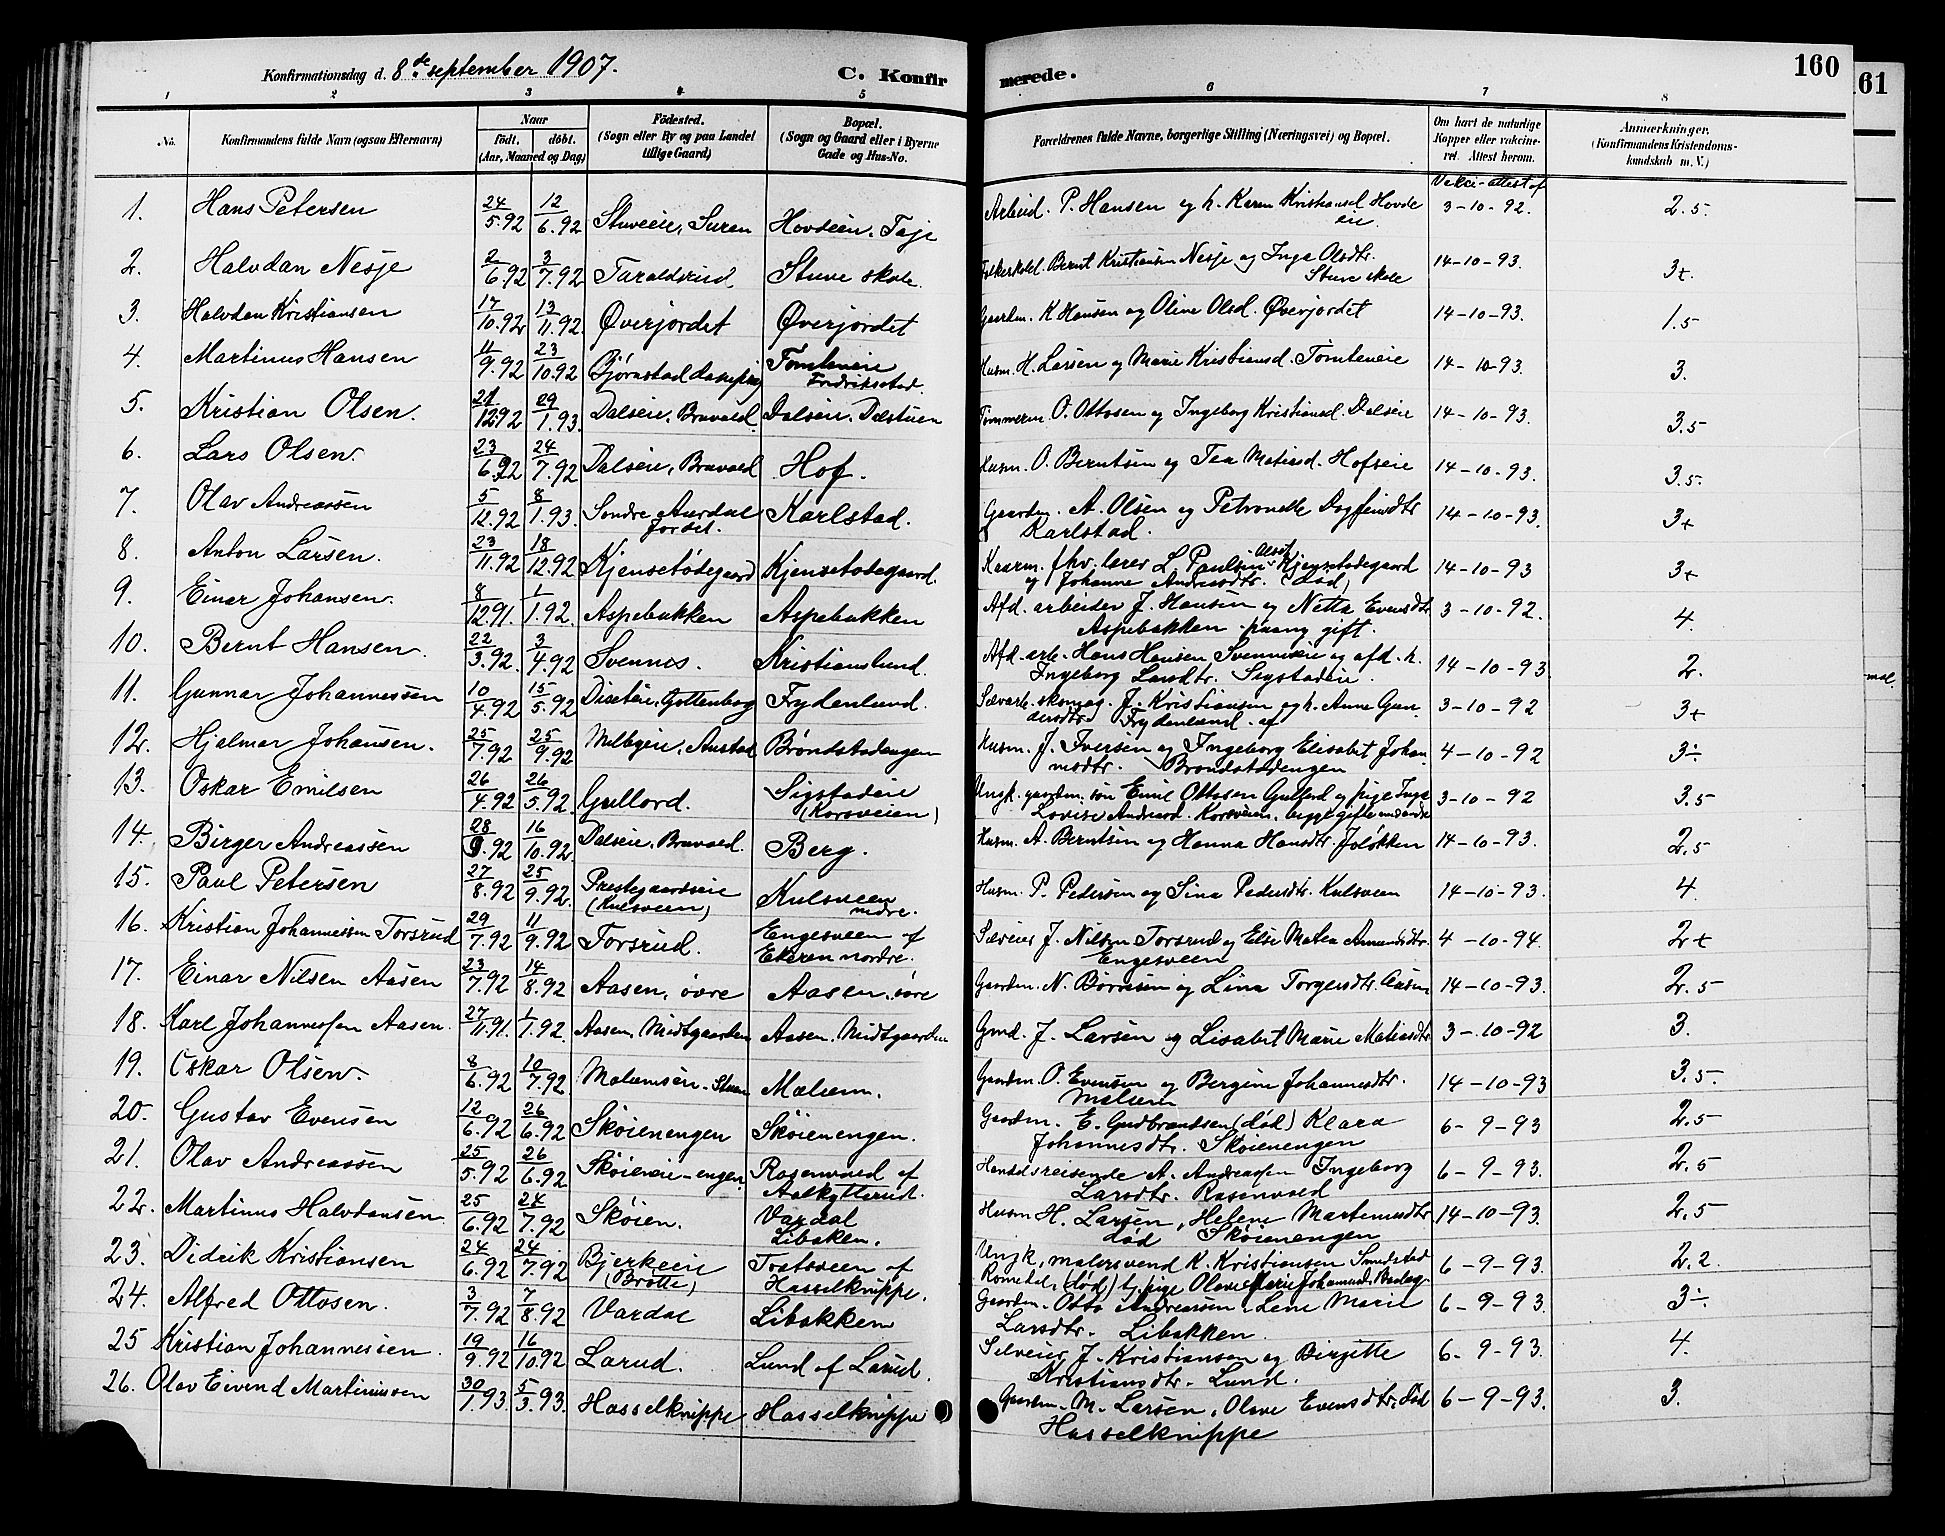 160
61
Konfirmationsdag d. 8de september 1907. C. Konfirmerede.
1 2 3 4 5 6 7 8
No. Konfirmandens fulde Navn (ogsaa Efternavn) Naar født. døbt. (Aar, Maaned og Dag) Fødested. (Sogn eller By og paa Landet tillige Gaard) Bopæl. (Sogn og Gaard eller i Byerne Gade og Hus-No. Forældrenes fulde Navne, borgerlige Stilling (Næringsvei) og Bopæl. Om havt de naturlige Kopper eller vakcineret. Attest herom. Anmærkninger. (Konfirmandens Kristendomskundskab m. V.)
Vakci-attest af
1. Hans Petersen 24/5.92 12/6.92 Stuveeie, Suren Hovdeien. Arbeid. P. Hansen og h. Karen Kristiansd. Hovdeeie. 3-10-92. 2.5.
2. Halvdan Nesje 2/6.92 3/7.92 Taraldsrud Stuve skole. Bernt Kristiansen Nesje og Inga Olsdtr. Stuve skole 14-10-93. 3+
3. Halvdan Kristiansen 17/10.92 13/11.92 Øverjordet Øverjordet Gaardm. K. Hansen og Oline Olsd. Øverjordet 14-10-93. 1.5
4. Martinus Hansen 11/9.92 23/10.92 Bjørnstad Tømteeie Fredriksstad. Husm. H. Larsen og Marie Kristiansd. Tømteeie 14-10-93. 3.
5. Kristian Olsen. 21/12 92 29/1.93. Dalseie, Bravald. Dalseie. Dæstuen Tømmerm. O. Ottosen og Ingeborg Kristiansd. Dalseie 14-10-93. 3.5
6. Lars Olsen. 23/6.92 24/7.92 Dalseie, Bravald Hof. Husm. O. Berntsen og Tea Matiasd. Hofseie 14-10-93. 3.5.
7. Olav Andreassen 5/12.92 8/1.93. Søndre Aurdal Jordet. Karlstad. Gaardm. A. Olsen og Petronelle Dagfinsdtr Karlstad. 14-10-93. 3+
8. Anton Larsen. 23/11.92 18/12.92 Kjensetødegaard Kjensetødegaard. Kaarm. fhv. lærer L. Paulsen Kjensetødegaard og Johanne Andersdtr. (død) 14-10-93 3+
9. Einar Johansen. 8/12 91. 1/1.92. Aspebakken Aspebakken Afd. arbeider J. Hansen og Netta Evensdtr Aspebakken paany gift. 3-10-92. 4.
10. Bernt Hansen. 22/3.92. 3/4.92 Svennes. Kristianslund. Afd. arb. Hans Hansen Svenneseie og afd. h. Ingeborg Larsdtr. Sigstadeie. 14-10-93. 2.
11. Gunnar Johannessen 10/4.92 15/5.92 Diseteie, Gottenborg Frydenlund. J. Kristiansen og h. Anne Gundersdtr. Frydenlund. 3-10-92 3+
12. Hjalmar Johansen. 25/7.92 25/9.92 Melbyeie, Austad Brøndstadengen Husm. J. Iversen og Ingeborg Elisabet Johansdtr. Brøndstadengen 4-10-92 3÷
13. Oskar Emilsen 26/4.92 26/5.92 Gullord. Sigstadeie (Korsveien) Ungk. gaardm. søn Emil Ottosen Gullord og pige Inga Lovise Andersd. Korsveien, begge gifte med andre 3-10-92 3.5
14. Birger Andreassen 28/9.92 16/10.92 Dalseie, Bravald. Berg. Husm. A. Berntsen og Hanna Hansdtr. Joløkken 14-10-93. 2.5
15. Paul Petersen 27/8.92 25/9.92. Prestegaardseie (Kulsveen) Kulsveen nedre. Husm. P. Pedersen og Sina Pedersdtr. Kulsveen 14-10-93. 4.
16. Kristian Johannessen Torsrud 29/7.92 11/9.92 Torsrud. Engesveen af Ekeren nordre. Selveier J. Nilsen Torsrud og Else Matea Amundsdtr. Engesveen 4-10-94. 2+
17. Einar Nilsen Aasen 23/7.92 14/8.92 Aasen, øvre Aasen, øvre Gaardm. N. Børresen og Lina Torgersdtr. Aasen 14-10-93. 2.5
18. Karl Johannessen Aasen. 27/11.91. 1/1.92. Aasen. Midtgaarden Aasen. Midtgaarden Gmd. J. Larsen og Lisabet Marie Matiasdtr 3-10-92 3.
19. Oskar Olsen. 8/6.92 10/7.92. Malumsen. Stuen Mælum. Gaardm. O. Evensen og Bergine Johannesdtr. Mælum 14-10-93 3.5.
20. Gustav Evensen 12/6.92 26/6.92 Skøienengen Skøienengen. Gaardm. E. Gudbrandsen (død) Klara Johannesdtr. Skøienengen 6-9-93 2.5
21. Olav Andreassen 25/5.92 26/6.92 Skøieneie-engen. Rosenvold af Aalkytterud. Handelsreisende A. Andreassen Ingeborg Larsdtr. Rosenvold 6-9-93. 2.5
22. Martinus Halvdansen 25/6.92 24/7.92 Skøien. Vardal Libakken. Husm H. Larsen, Helene Martinusdtr død Skøienengen 14-10-93. 2.5
23. Didrik Kristiansen 24/6.92 24/7.92 Bjerkeeie (Brotte) Tratsveen af Hasselknippe. Ungk. malersvend K. Kristiansen Smedstad Romedal, (død) t. pige Olave Marie Johannesd. 6-9-93. 2.2
24. Alfred Ottosen. 3/7.92 7/8.92 Vardal Libakken Gaardm. Otto Andreassen. Lene Marie Larsdtr. Libakken. 6-9-93. 3÷
25 Kristian Johannessen. 19/9.92 16/10.92 Larud. Lund af Larud. Selveier J. Kristiansen og Birgitte Kristiansdtr. Lund. 6-9-93. 4.
26. Olav Eivend Martinussen 30/1.93. 5/3.93. Hasselknippe Hasselknippe Gaardm. M. Larsen, Olave Evensdtr. død Hasselknippe 6-9-93. 3.